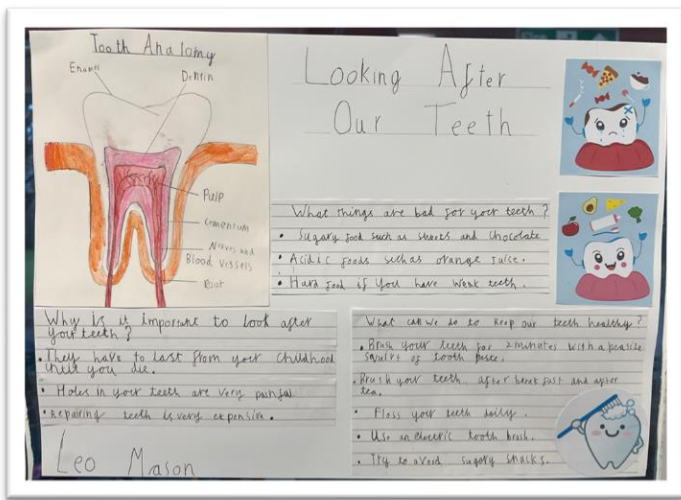 Tooth Anatomy
Enamel
Dentin
Pulp
Cementum
Nerves and
Blood Vessels
Root
Looking After
Our Teeth
What things are bad for your teeth?
• Sugary food such as sweets and chocolate
• Acidic foods such as orange juice.
• Hard food if you have weak teeth.
Why is it important to look after
your teeth?
• They have to last from your childhood
until you die.
• Holes in your teeth are very painful
• Repairing teeth is very expensive.
Leo Mason
What can we do to keep our teeth healthy?
• Brush your teeth for 2 minutes with a pea size
squirt of tooth paste.
• Brush your teeth after breakfast and after
tea.
• Floss your teeth daily.
• Use an electric tooth brush.
• Try to avoid sugary snacks.